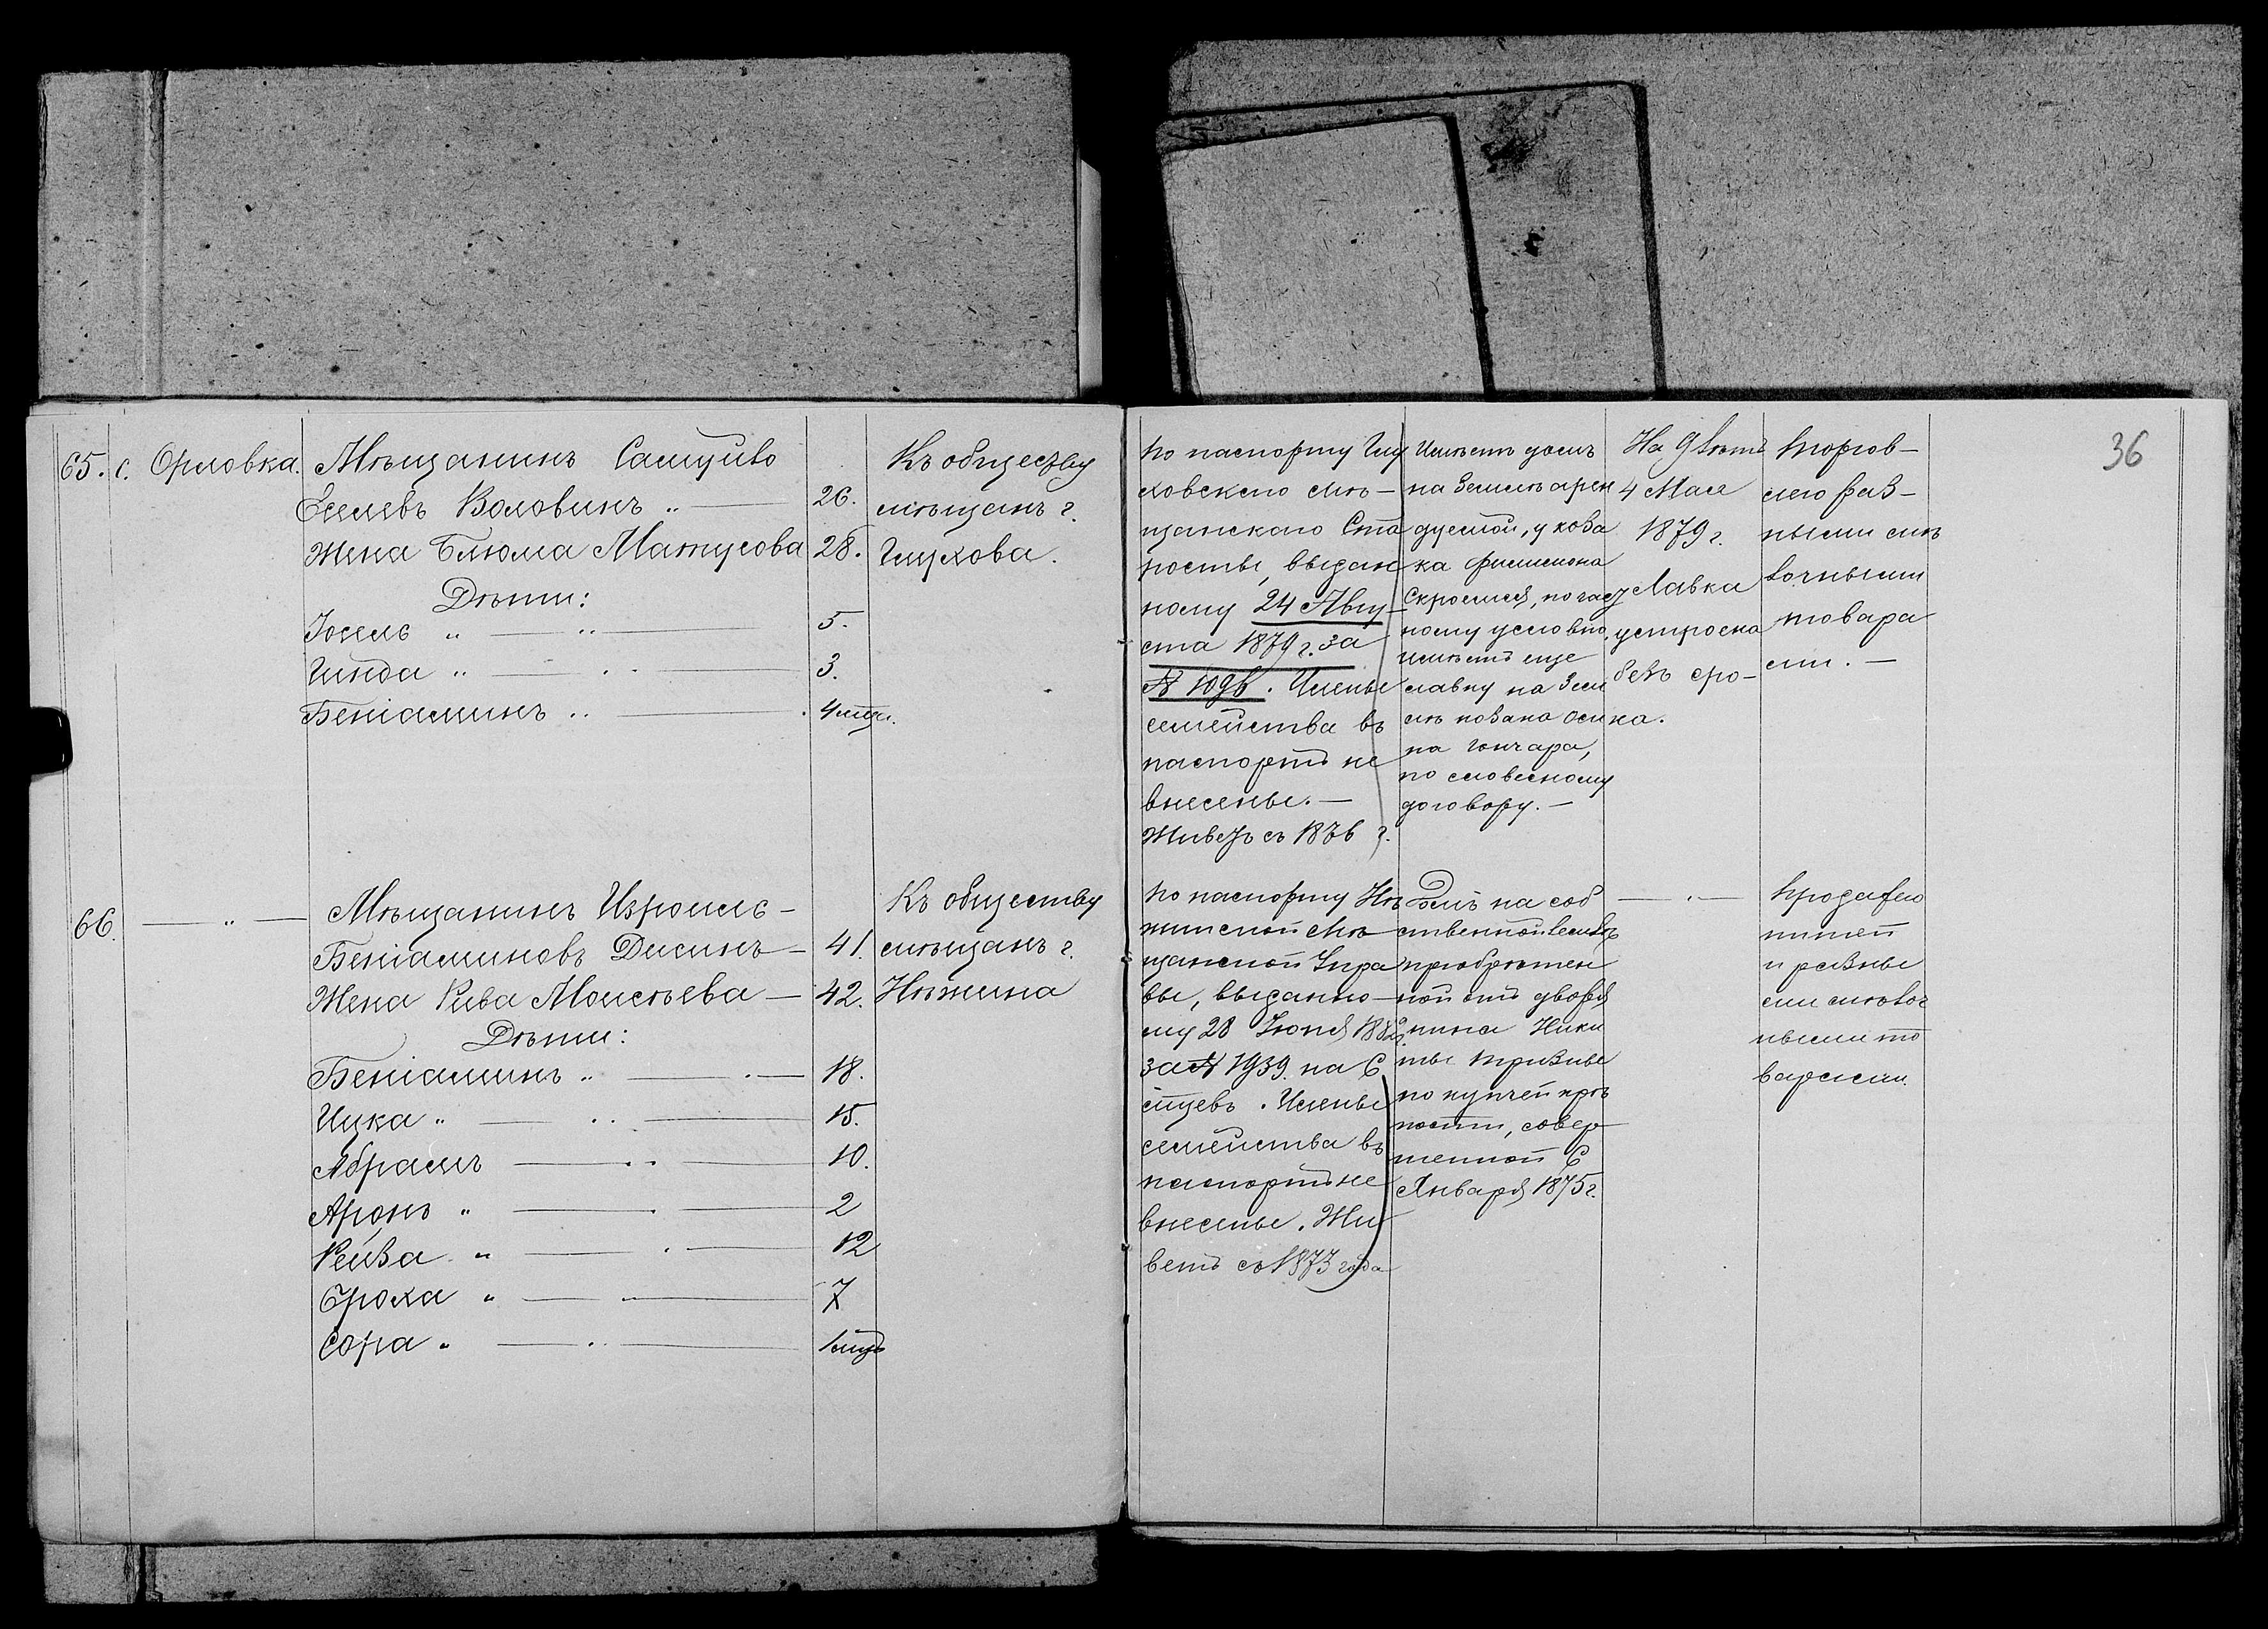 36
65. с. Орловка. Мѣщанинъ Самуило
Еселевъ Воловикъ „ — 26.
Жена Блюма Матусова 28.
Дѣти:
Іосель „ — „ — 5.
Гинда „ — 3.
Беніаминъ „ — 4 мѣц.
Къ обществу
мѣщанъ г.
Глухова.
по паспорту Глу
ховского мѣ-
щанскаго Ста
росты, выдан
ному 24 Авгу-
ста 1879 г. за
№ 1096. Члены
семейства въ
паспортъ не
внесены. —
Живетъ съ 1876 г.
Имѣетъ домъ
на землѣ арен
дуемой, у коза
ка Филимона
по час
ному условію,
имѣетъ еще
лавку на зем
лѣ козака Оси
па Гончара,
по словесному
договору. —
На 9 лѣтъ
4 Мая
1879 г.
Лавка
устроена
безъ сро-
ка.
Торгов-
лею раз-
ными мѣ
лочными
товара
ми. —
66. — „ — Мѣщанинъ Изроиль -
Беніаминовъ Дисинъ — 41.
Жена Рива Моисѣева — 42.
Дѣти:
Беніаминъ „ — 18.
Ицка „ — „ — 15.
Абрамъ — „ — 10.
Аронъ „ — 2
Рейза „ — 12
Броха „ — „ — 7
Сора „ — „ — 1 мѣц
Къ обществу
мѣщанъ г.
Нѣжина
по паспорту Нѣ
жинской мѣ
щанской Упра
вы, выданно-
му 28 Іюня 1882 г.
за № 1939. на 6
мѣцевъ. Члены
семейства въ
паспортъ не
внесены. Жи
ветъ съ 1873 года
Домъ на соб
ственной землѣ
приобрѣтен
ной отъ дворя
нина Ники
ты Тризны
по купчей крѣ
пости, совер
шенной 6
Января 1875 г.
— „ —
Продажею
питей
и разны
ми мѣлоч
ными то
варами.